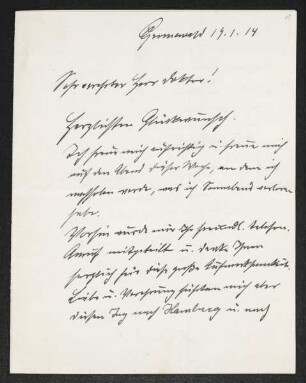 Grunewald 19.1.14
Sehr verehrter Herr Doktor!
Herzlichsten Glückwunsch.
Ich freue mich aufrichtig u. freue mich
auf den Abend dieser Woche, an dem ich
nachholen werde, was ich Sonnabend verloren
habe.
Vorhin wurde mir Ihr freundl. telefon.
Anruf mitgeteilt u. danke Ihnen
herzlich für diese große Aufmerksamkeit.
Liebe u. Verehrung führten mich aber
diesen Tag nach Hamburg u. nach